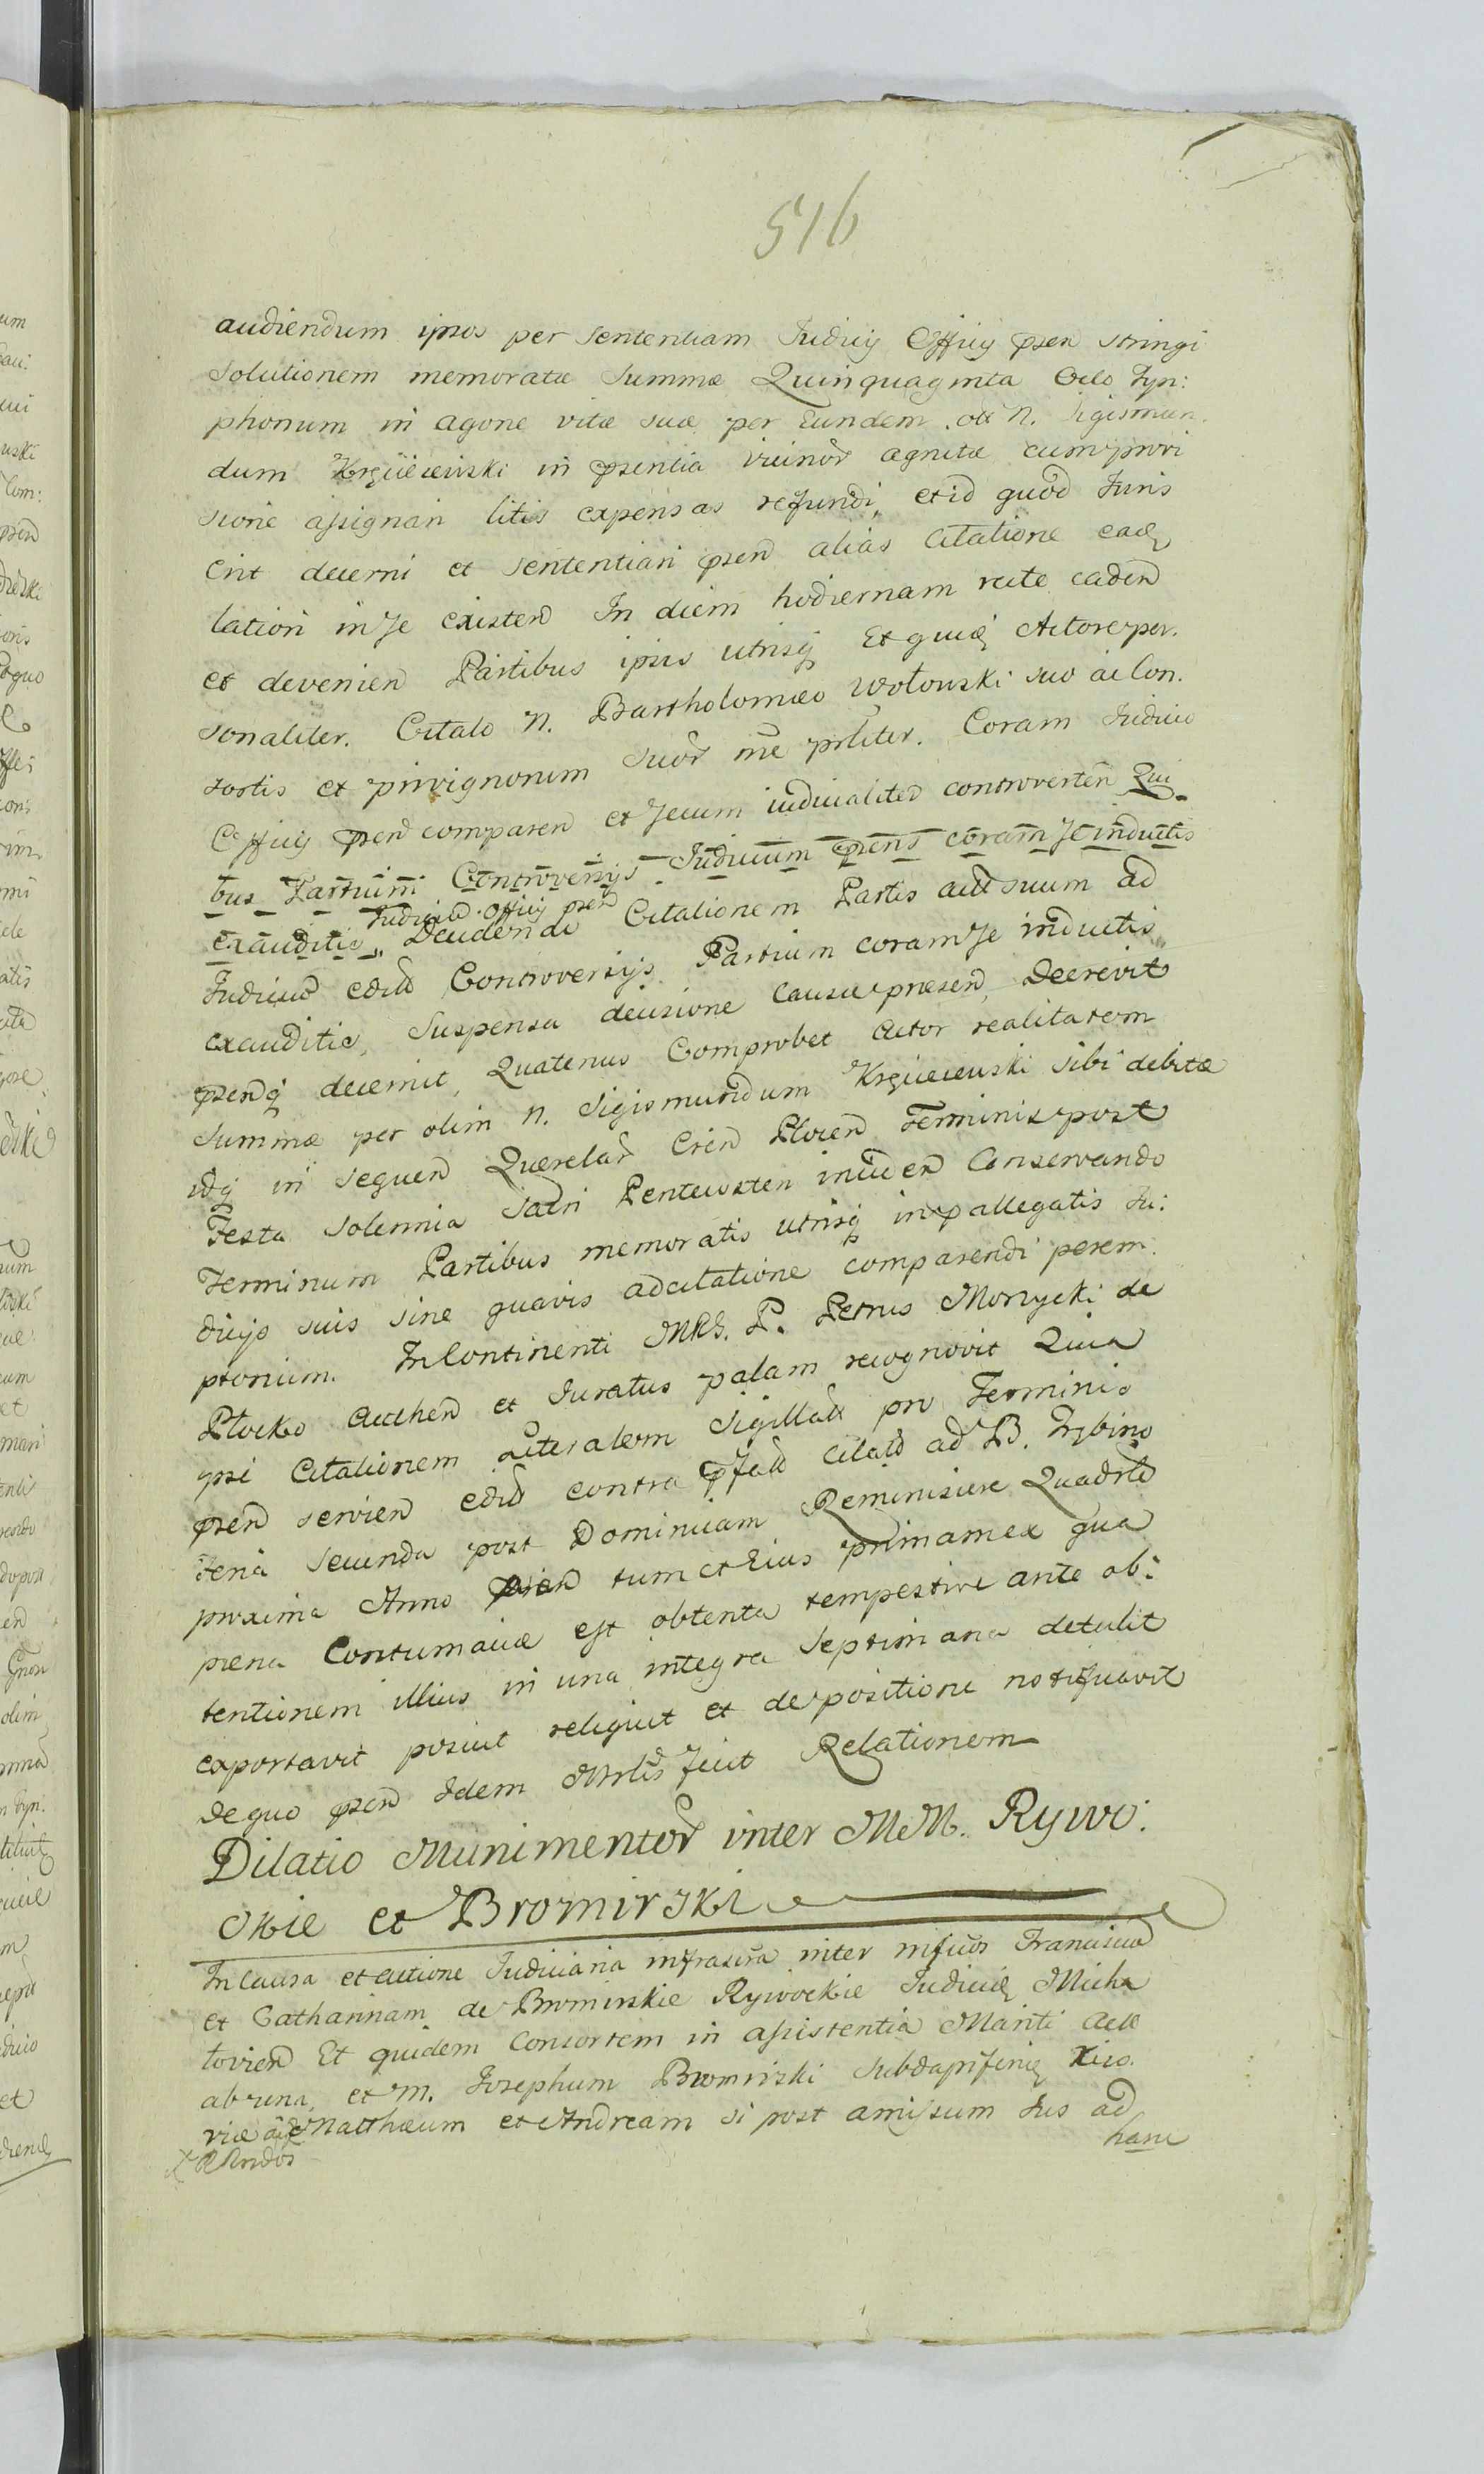 516
audiendum ipsos per Sententiam Judicij Officij pñsen stringi
Solutionem memoratæ Summæ Quinquaginta Octo Tyn:
phonum in agone vitæ suæ per Eundem olim N. Sigismun.
dum in pñsentia vicinor agnitæ cum provi
sione assignari litis expensas refundi, et id quod Juris
Erit decerni et Sententiari pñsen alias Citatione eadẽ
latiori in se existen In diem hodiernam recte caden
et devenien Partibus ipsis utrisq Et quidẽ Actore per.
sonaliter. Citato N. Bartholomæo Wołowski suo ac Con.
sortis et privignorum suor nñe pñliter. Coram Judicio
Officij pñsen comparen et secum iudicialiter controverten Qui
bus Partium Controversijs Judicium pñsens coram se inductis
exauditis, Judicium Officij pñsen
Decidendo Citationem Partis Act suum ad
Judicium edit Controversijs Partium coram se inductis
exauditis, Suspensa decisione Causæ præsen, Decrevit
pñsenq decernit, Quatenus Comprobet Actor realitatem
Summæ per olim N. Sigismundum sibi debitæ
idq in sequen Querelar Cren Plocen Terminis post
Festa Solennia Sacri Pentecosten inciden Conservando
Terminum Partibus memoratis utrisq in pallegatis Ju:
dicijs suis sine quavis adcitatione comparendi perem.
ptorium. In Continenti Mñls. P. Petrus Morzycki de
Plocko Authen et Juratus palam recognovit Quia
ipse Citationem Literalem Sigillat pro Terminis
pñsen servien edit contra pfat Citat ad B. Trzbino
Feria Secunda post Dominicam Reminiscere Quadrlem
proxima Anno pñsen tum et Eius primam ex qua
pæna Contumaciæ est obtenta tempestive ante ob:
tentionem illius in una integra Septimana detulit
exportavit posuit reliquit et de positione notificavit
De quo pñsen Idem Mñlis fecit Relationem
Dilatio Munimentor inter MM. Rywo:
ckie et Bromirski
In Causa et Actione Judiciaria infrascra inter mfcos Franciscum
et Catharinam de Bromirskie Rywockie Judicẽ Micha
lovien Et quidem Consortem in assistentia Mariti Act
ab una, et M. Josephum Bromirski Subdapiferum
viæ acz Matthæum et Andream si post amissum Jus ad
hanc